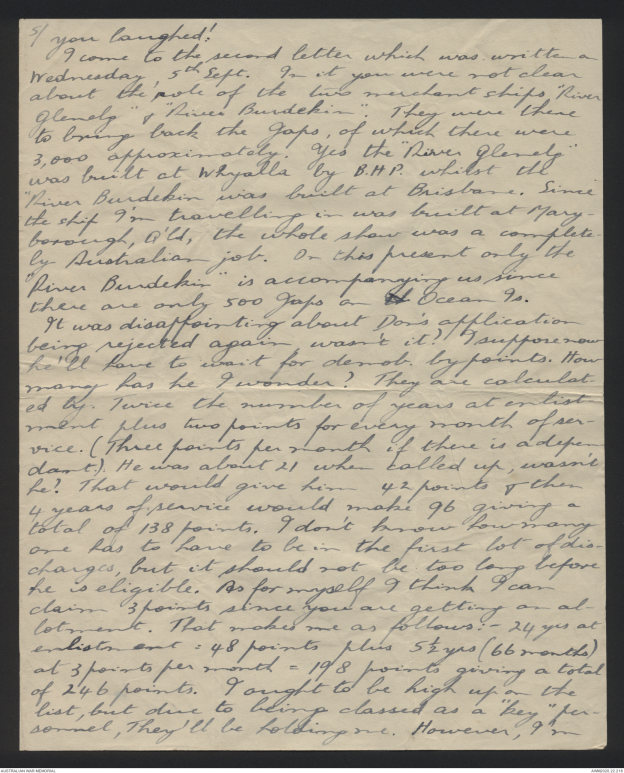 5/ you laughed!
I come to the second letter which was written on
Wednesday, 5th Sept. In it you were not clear
about the role of the two merchant ships "River
Glenelg" & "River Burdekin". They were there
to bring back the Japs, of which there were
3,000 approximately. Yes the "River Glenelg"
was built at Whyalla by B.H.P. whilst the
"River Burdekin was built at Brisbane. Since
the ship I'm travelling in was built at Mary-
borough, Q'ld, the whole show was a complete-
ly Australian job. On this present only the
"River Burdekin" is accompanying us since
there are only 500 Japs on Ocean Is.
It was disappointing about Don's application
being rejected again, wasn't it? I suppose now
he'll have to wait for demob. by points. How
many has he I wonder? They are calculat-
ed by. Twice the number of years at enlist-
ment plus two points for every month of ser-
vice. (Three points per month if there is a depen
dant). He was about 21 when called up, wasn't
he? That would give him 42 points & then
4 years of service would make 96 giving a
total of 138 points. I don't know how many
one has to have to be in the first lot of dis-
charges, but it should not be too long before
he is eligible. As for myself I think I can
claim 3 points since you are getting an al-
lotment. That makes me as follows:- 24 yrs at
enlistment = 48 points plus 5½ yrs (66 months)
at 3 points per month = 198 points giving a total
of 246 points. I ought to be high up on the
list, but due to being classed as a "key" per-
sonnel, They'll be holding me. However, I'm
AUSTRALIAN WAR MEMORIAL
AWM2020.22.216